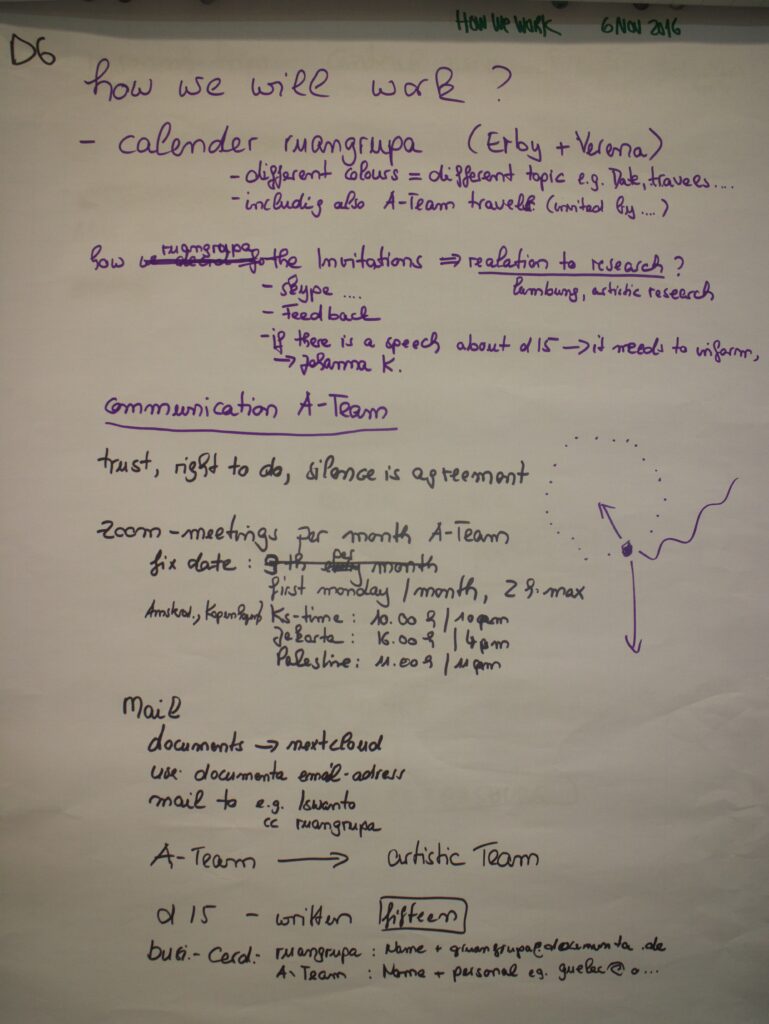 How we work 6 Nov 2016
D6
how we will work ?
- calender ruangrupa (Erby + Verena)
- different colours = different topic e.g. Date, travels....
- including also A-Team travels (invited by ....)
ruangrupa
how the Invitations ⇒ realation to research ?
lumbung, artistic research
- skype ....
- Feedback
- if there is a speech about d15 → it needs to inform,
→ Johanna K.
communication A-Team
trust, right to do, silence is agreement
Zoom-meetings per month A-Team
fix date : 9th per month
first monday / month, 2 h. max
Ks-time : 10.00 h / 10 pm
Jakarta : 16.00 h / 4 pm
Palestine : 11.00 h / 11 pm
Mail
documents → nextcloud
use documenta email-adress
mail to e.g. Iswanto
cc ruangrupa
A-Team → artistic Team
d 15 - written fifteen
ruangrupa : Name +
A-Team : Name + personal eg.